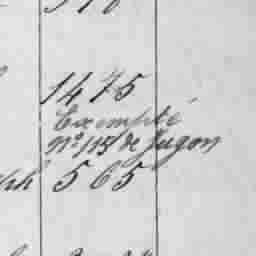 1475
Exempté
nº 115 de Jugon
565